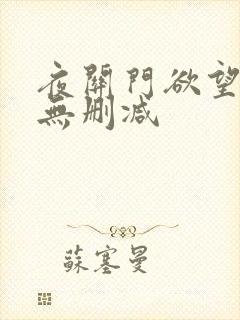 夜關門欲望
無刪减
蘇塞曼